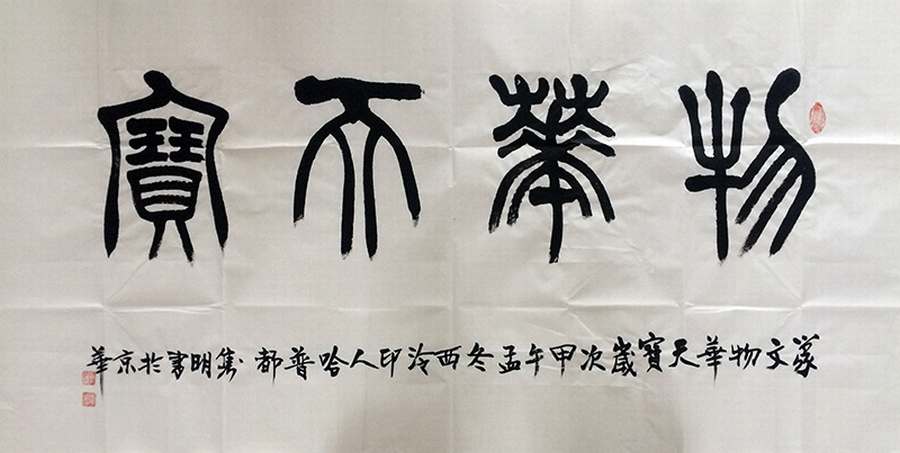 物華天寶
篆文物華天寶歲次甲午孟冬西泠印人哈普都·隽明書於京華